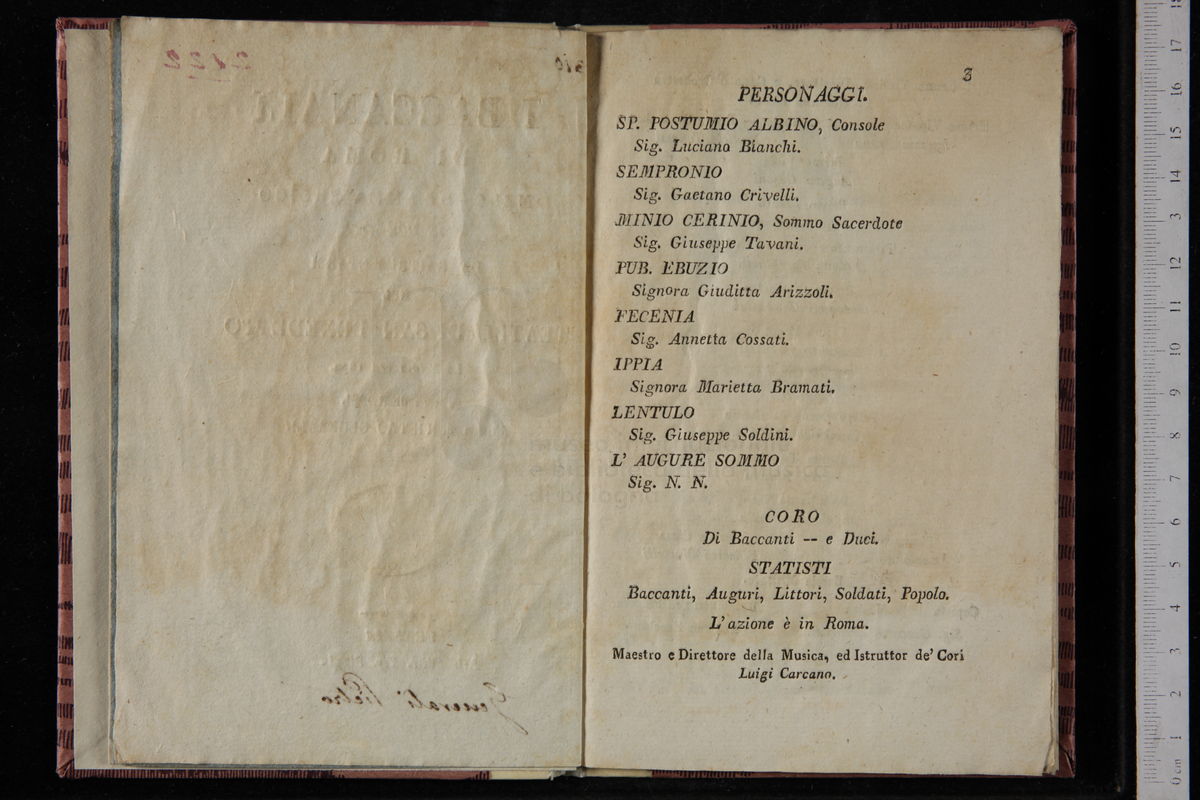 3
PERSONAGGI.
SP. POSTUMIO ALBINO, Console
Sig. Luciano Bianchi.
SEMPRONIO
Sig. Gaetano Crivelli.
MINIO CERINIO, Sommo Sacerdote
Sig. Giuseppe Tavani.
PUB. EBUZIO
Signora Giuditta Arizzoli.
FECENIA
Sig. Annetta Cossati.
IPPIA
Signora Marietta Bramati.
LENTULO
Sig. Giuseppe Soldini.
L' AUGURE SOMMO
Sig. N. N.
CORO
Di Baccanti -- e Duci.
STATISTI
Baccanti, Auguri, Littori, Soldati, Popolo.
L' azione è in Roma.
Maestro e Direttore della Musica, ed Istruttor de' Cori
Luigi Carcano.